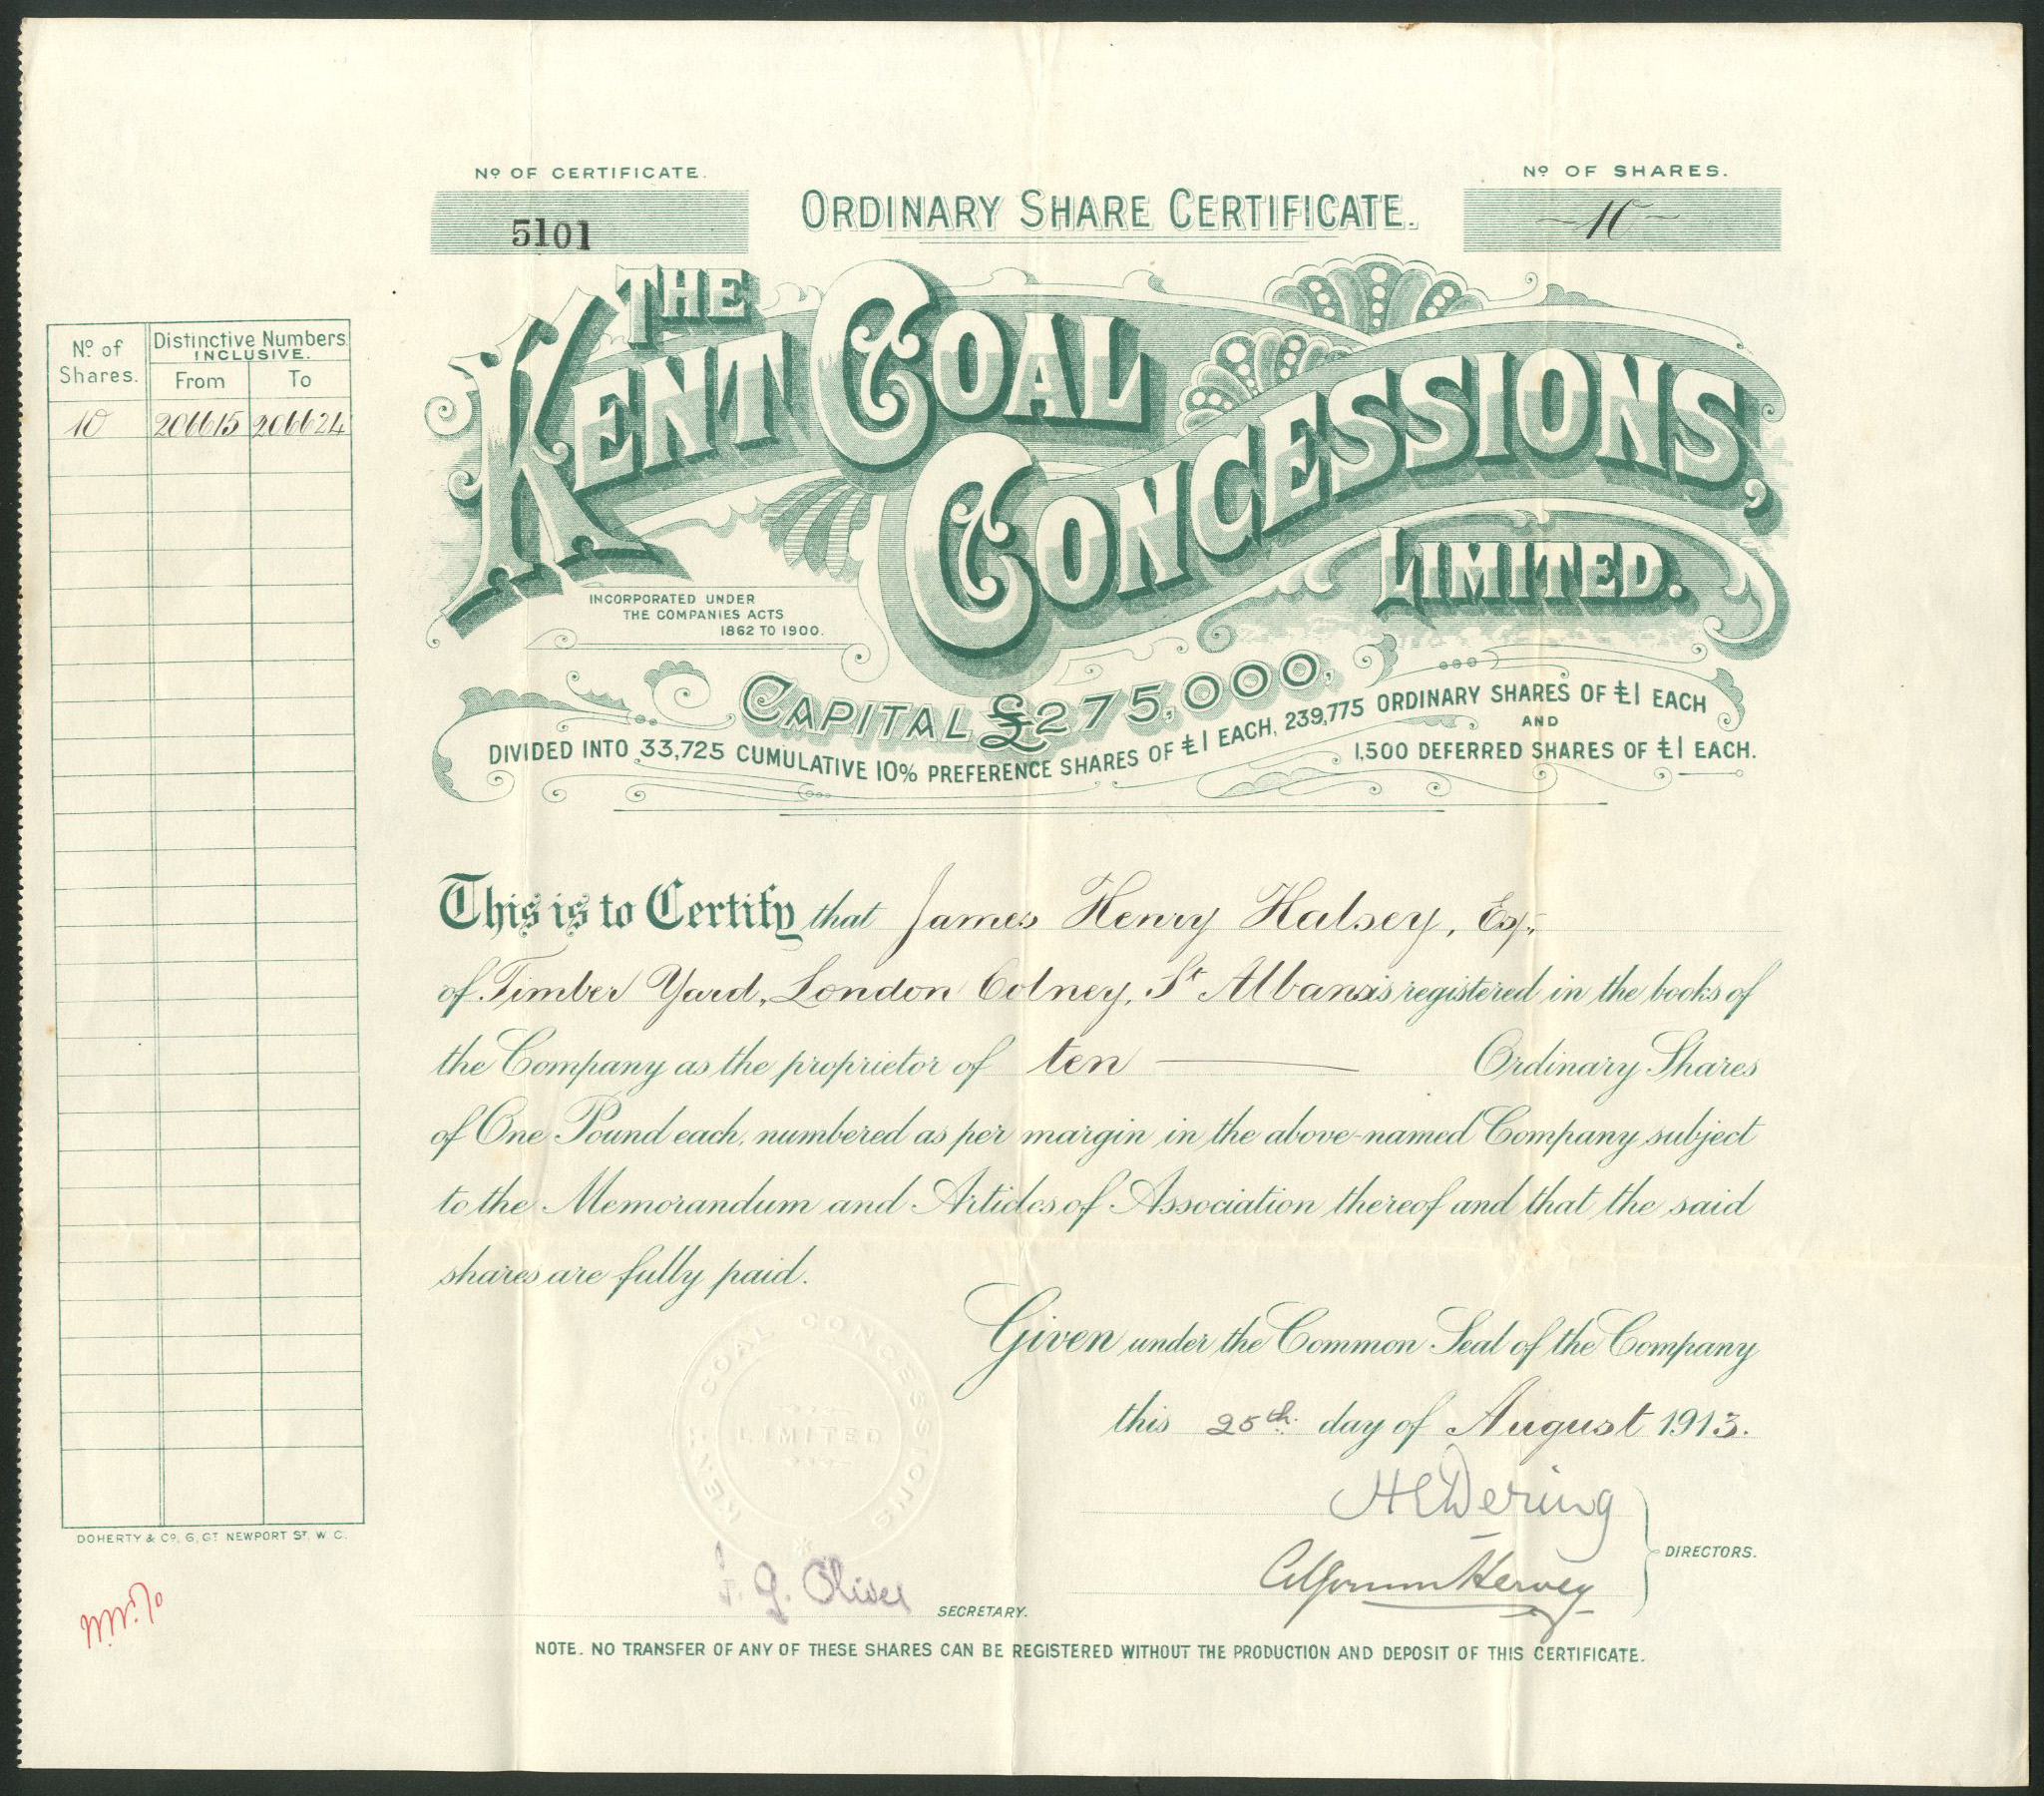 Nº OF CERTIFICATE.
5101
ORDINARY SHARE CERTIFICATE.
Nº OF SHARES.
10
THE
KENT COAL
CONCESSIONS,
LIMITED.
INCORPORATED UNDER
THE COMPANIES ACTS
1862 TO 1900.
CAPITAL £275,000,
DIVIDED INTO 33,725 CUMULATIVE 10% PREFERENCE SHARES OF £1 EACH, 239,775 ORDINARY SHARES OF £1 EACH
AND
1,500 DEFERRED SHARES OF £1 EACH.
Nº of Shares.
Distinctive Numbers
INCLUSIVE.
From To
10 206615 206624
This is to Certify that James Henry Halsey, Esq.
of Timber Yard, London Colney, St Albans is registered in the books of
the Company as the proprietor of ten Ordinary Shares
of One Pound each, numbered as per margin in the above-named Company subject
to the Memorandum and Articles of Association thereof and that the said
shares are fully paid.
Given under the Common Seal of the Company
this 25th day of August 1913.
KENT COAL CONCESSIONS
LIMITED
H E Dering
Hervey
DIRECTORS.
G. Oliver
SECRETARY.
DOHERTY & Cº, 6, GT NEWPORT ST, W.C.
NOTE. NO TRANSFER OF ANY OF THESE SHARES CAN BE REGISTERED WITHOUT THE PRODUCTION AND DEPOSIT OF THIS CERTIFICATE.